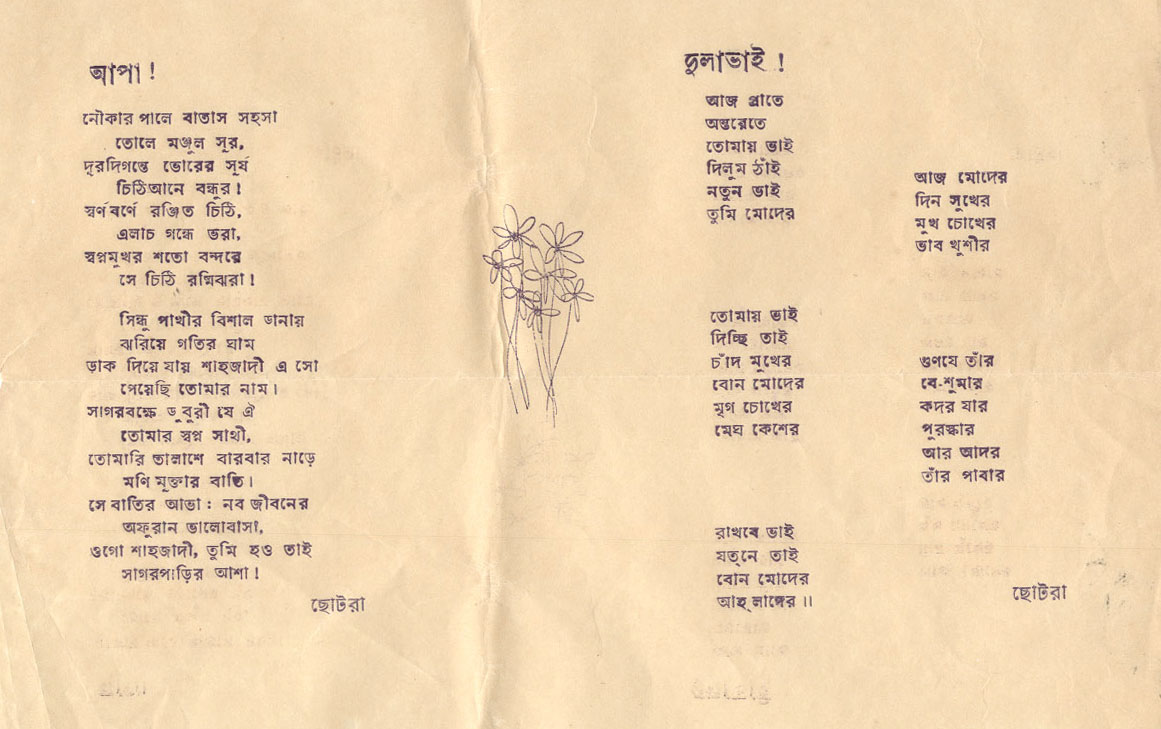 আপা !
নৌকার পালে বাতাস সহসা
তোলে মঞ্জুল সুর,
দূরদিগন্তে ভোরের সূর্য
চিঠিআনে বন্ধুর !
স্বর্ণবর্ণে রঞ্জিত চিঠি,
এলাচ গন্ধে ভরা,
স্বপ্নমুখর শতো বন্দরে
সে চিঠি রশ্মিঝরা !
সিন্ধু পাখীর বিশাল ডানায়
ঝরিয়ে গতির ঘাম
ডাক দিয়ে যায় শাহজাদী এ সো
পেয়েছি তোমার নাম।
সাগরবক্ষে ডুবুরী যে ঐ
তোমার স্বপ্ন সাথী,
তোমারি তালাশে বারবার নাড়ে
মণি মুক্তার বাতি।
সে বাতির আভা : নব জীবনের
অফুরান ভালোবাসা,
ওগো শাহজাদী, তুমি হও তাই
সাগরপাড়ির আশা !
ছোটরা
দুলাভাই !
আজ প্রাতে
অন্তরেতে
তোমায় ভাই
দিলুম ঠাঁই
নতুন ভাই
তুমি মোদের
আজ মোদের
দিন সুখের
মুখ চোখের
ভাব খুশীর
তোমায় ভাই
দিচ্ছি তাই
চাঁদ মুখের
বোন মোদের
মৃগ চোখের
মেঘ কেশের
গুণযে তাঁর
বে-শুমার
কদর যার
পুরস্কার
আর আদর
তাঁর পাবার
রাখবে ভাই
যত্‌নে তাই
বোন মোদের
আহ্‌লাদের ॥
ছোটরা